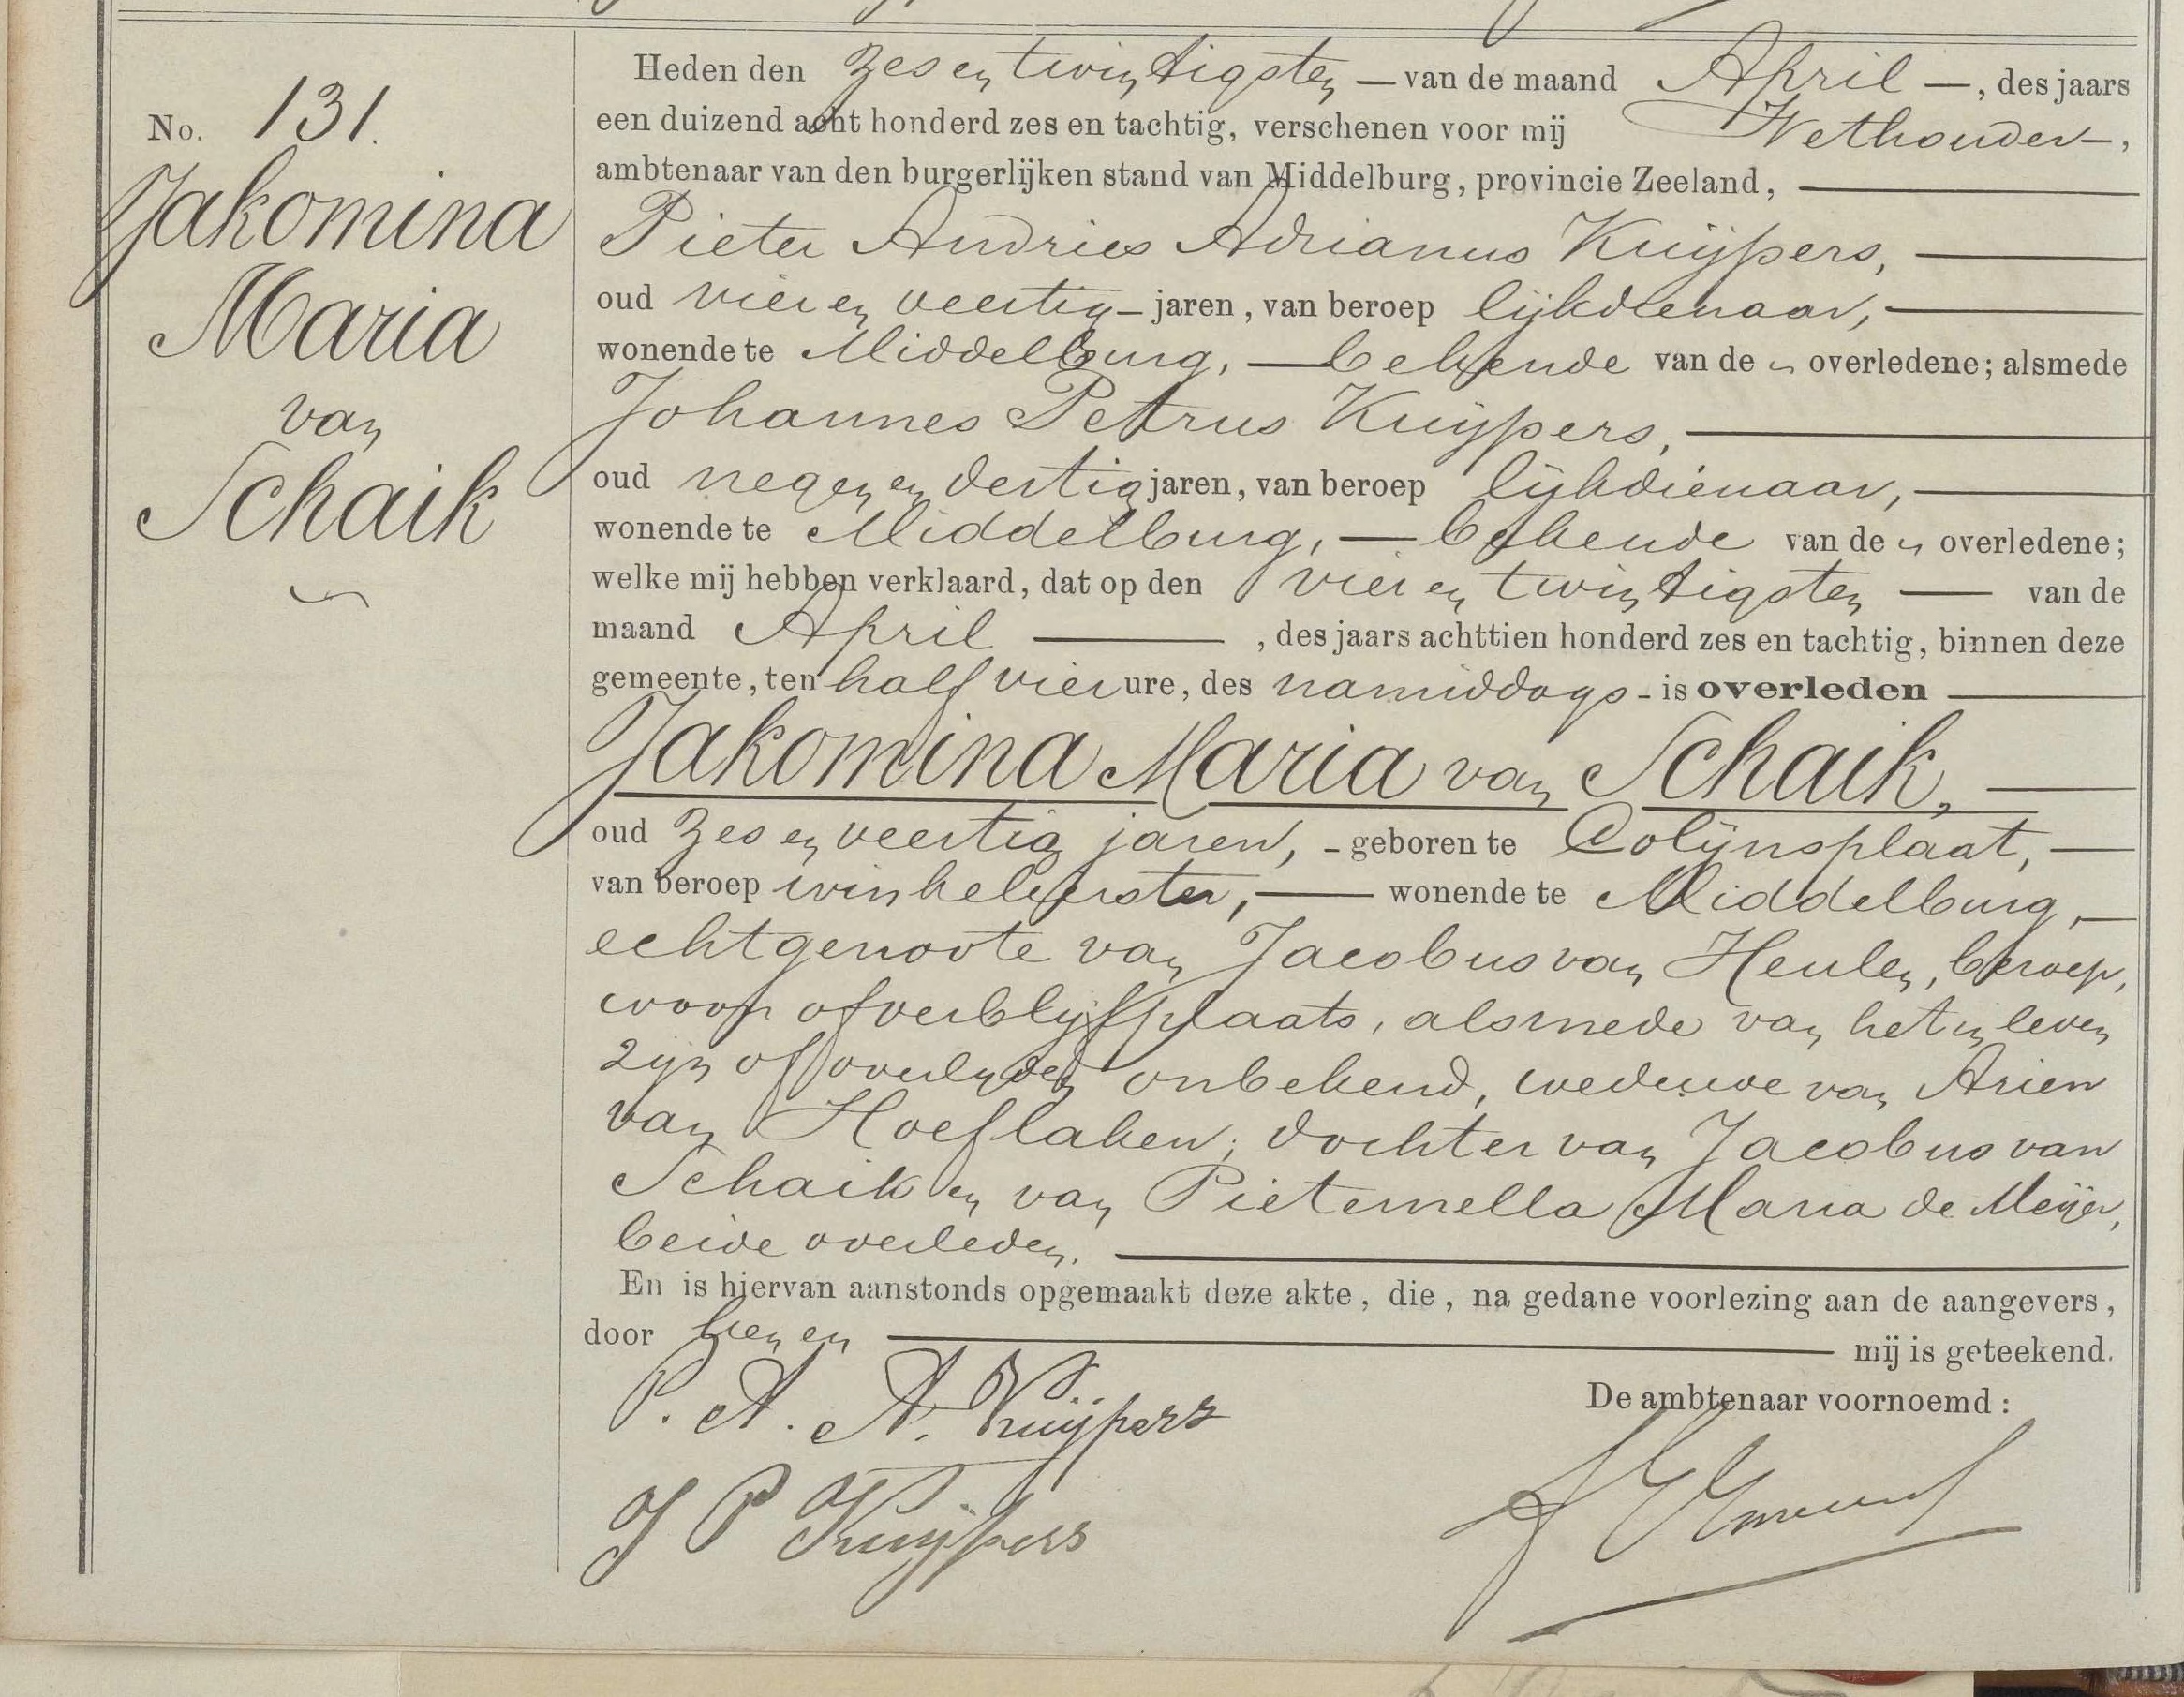 No. 131.
Jakomina
Maria
van
Schaik
Heden den zes en twintigsten — van de maand April —, des jaars
een duizend acht honderd zes en tachtig, verschenen voor mij Wethouder —,
ambtenaar van den burgerlijken stand van Middelburg, provincie Zeeland, —
Pieter Andries Adrianus Kuijpers, —
oud vier en veertig — jaren, van beroep lijkdienaar, —
wonende te Middelburg, — bekende van de n overledene; alsmede
Johannes Petrus Kuijpers, —
oud negen en dertig jaren, van beroep lijkdienaar, —
wonende te Middelburg, — bekende van de n overledene;
welke mij hebben verklaard, dat op den vier en twintigsten — van de
maand April —, des jaars achttien honderd zes en tachtig, binnen deze
gemeente, ten half vier ure, des namiddags - is overleden —
Jakomina Maria van Schaik, —
oud zes en veertig jaren, - geboren te Colijnsplaat, —
van beroep winkelierster, — wonende te Middelburg, —
echtgenoote van Jacobus van Heulen, beroep,
woon of verblijfplaats, alsmede van het in leven
zijn of overlijden onbekend, weduwe van Arien
van Hoeflaken; dochter van Jacobus van
Schaik en van Pieternella Maria de Meijer,
beide overleden. —
En is hiervan aanstonds opgemaakt deze akte, die, na gedane voorlezing aan de aangevers,
door hen en — mij is geteekend.
De ambtenaar voornoemd:
P. A. A. Kuijpers
J P Kuijpers